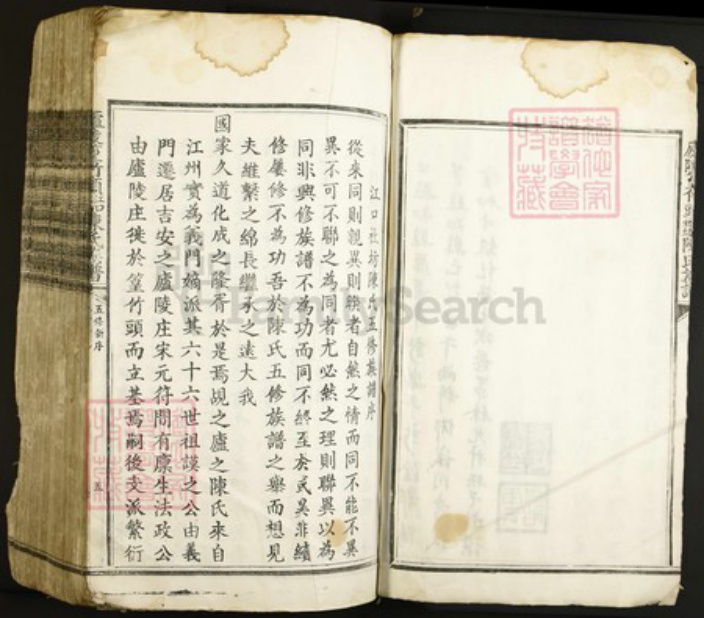 江口社坊陳氏五修族譜序
從來同則親異則睽者自然之情而同不能不異
異不可不聯之為同者尤必然之理則聯異以為
同非興修族譜不為功而同不終至於或異非續
修屢修不為功吾於陳氏五修族譜之舉而想見
夫維繫之綿長繼承之遠大我
國家久道化成之隆胥於是焉覘之廬之陳氏來自
江州實為義門嫡派其六十六世祖謨之公由義
門遷居吉安之廬陵庄宋元符間有廩生法政公
由廬陵庄徙於篁竹頭而立基焉嗣後支派繁衍
五修新序
五
FamilySearch